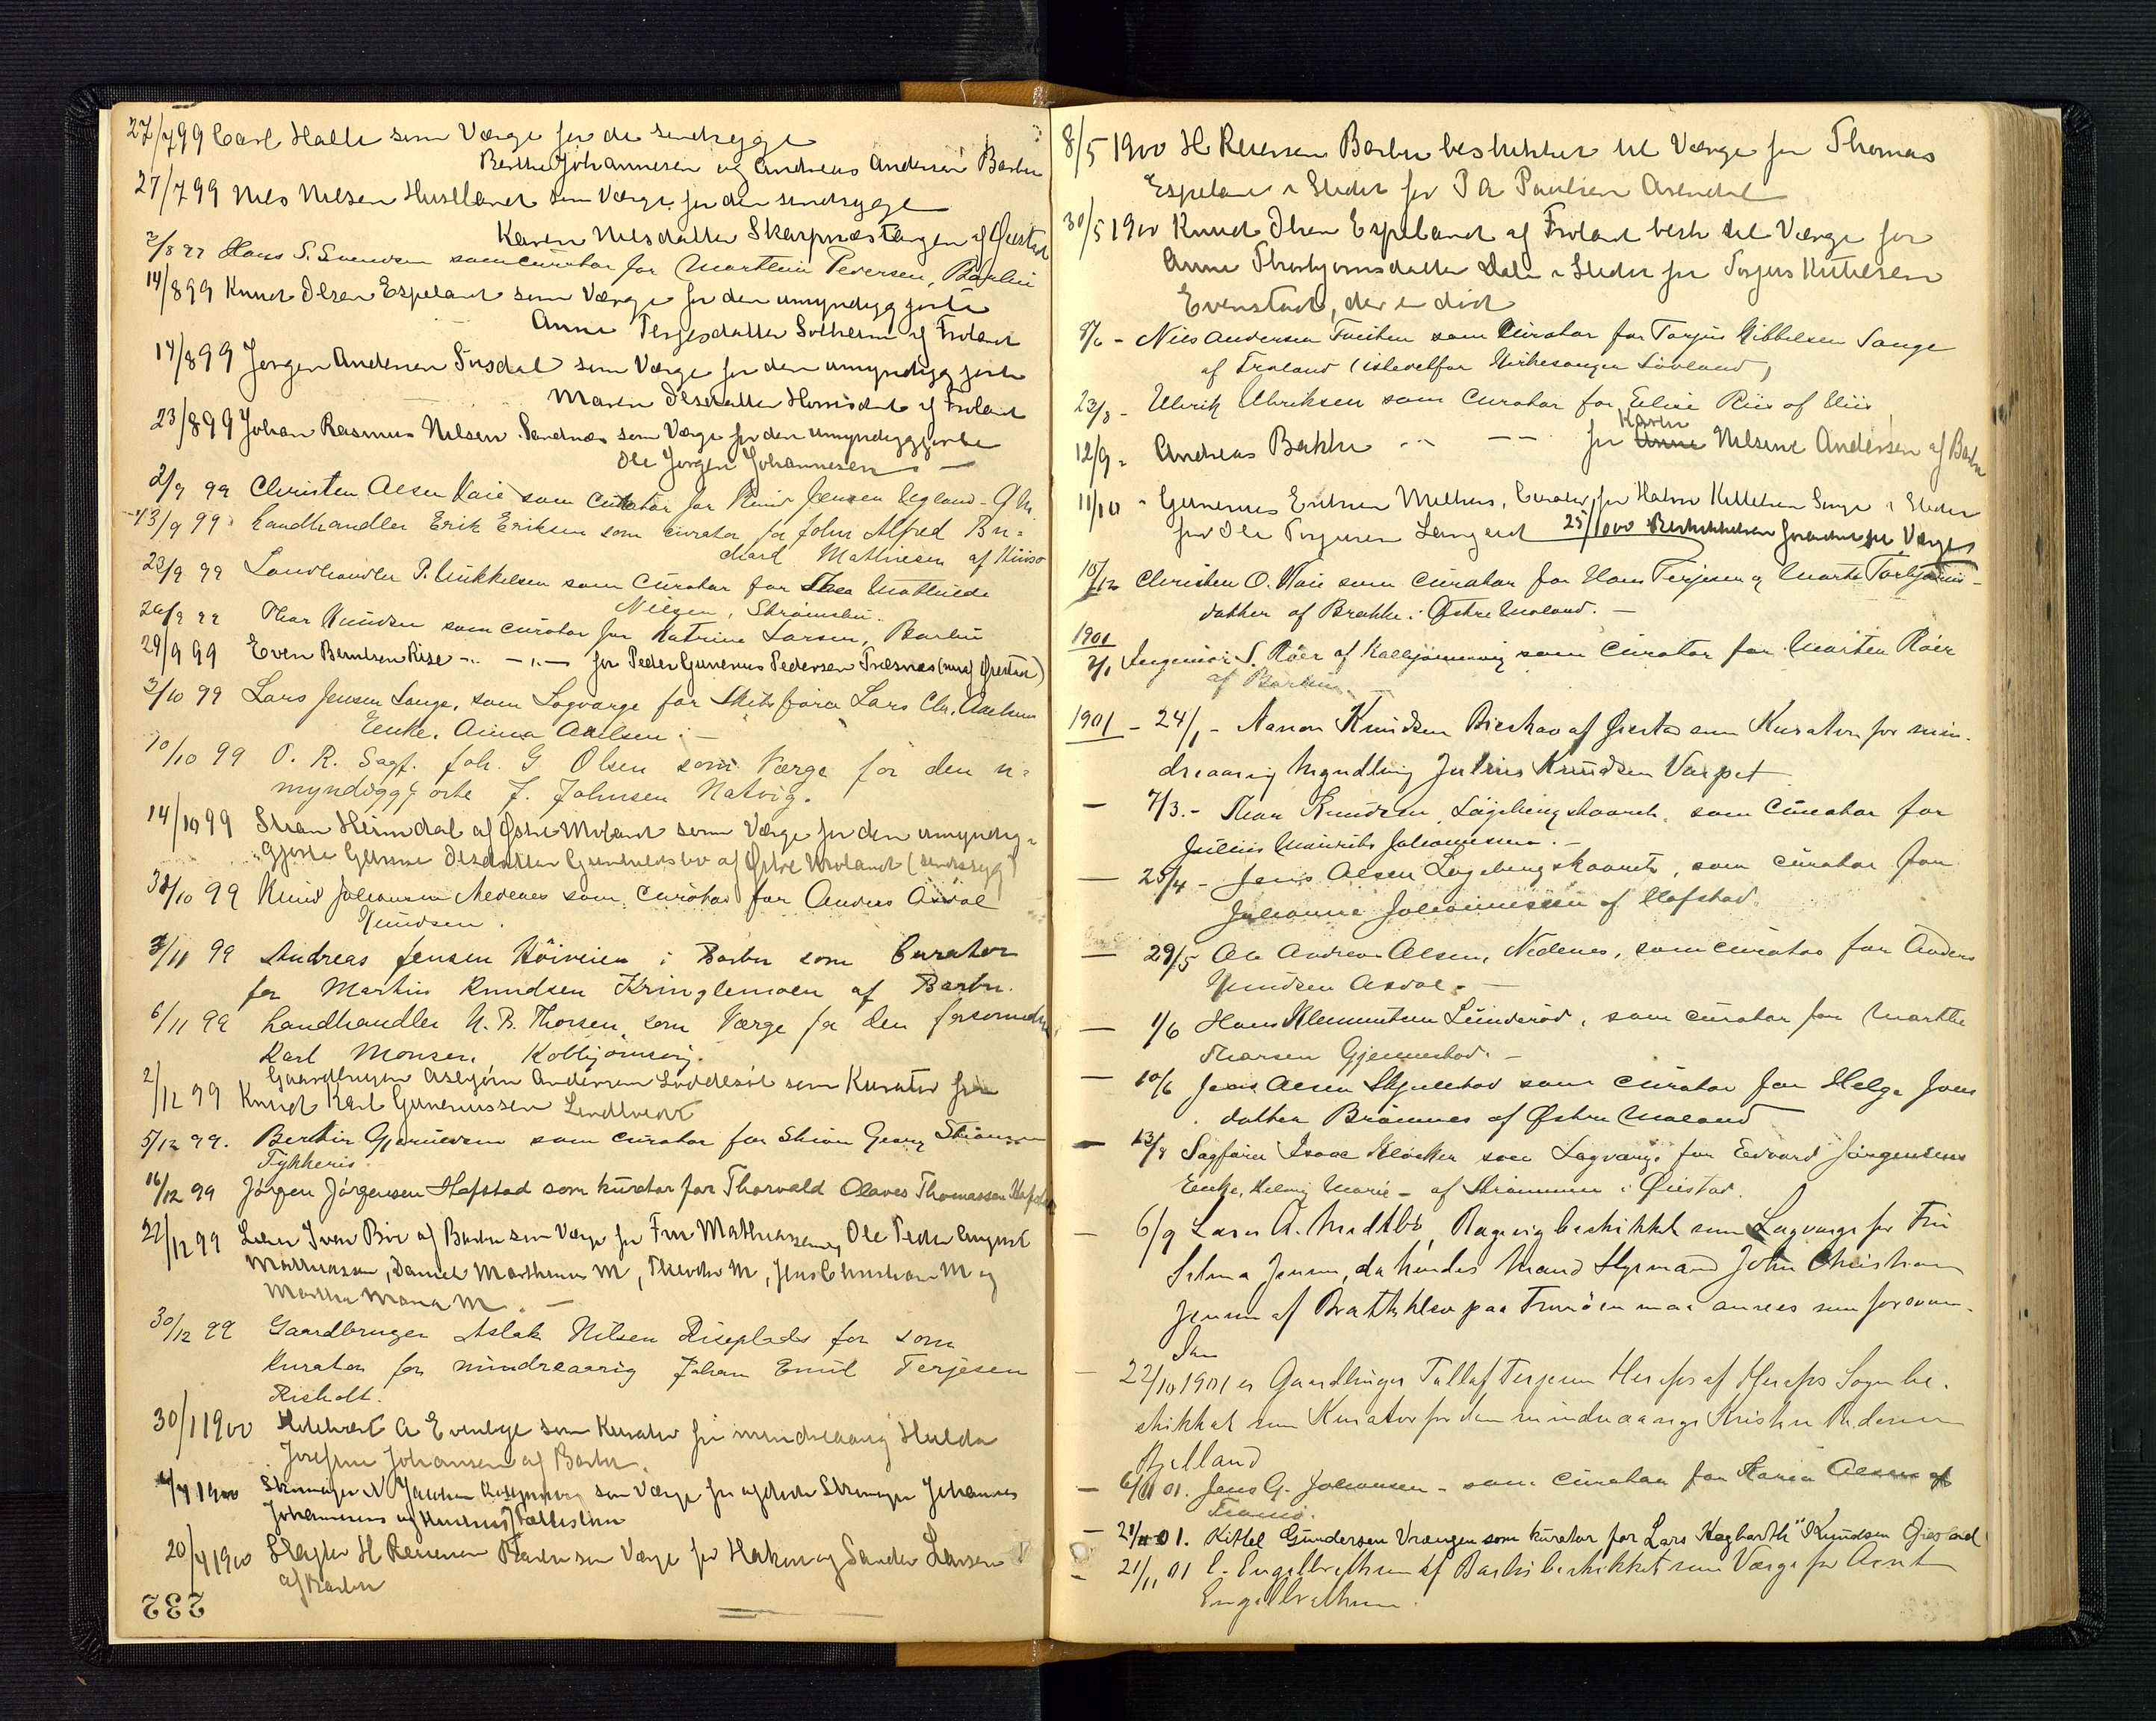 27/7 99 Carl Halle som Værge for de sindssyge
Berthe Johannesen og Andreas Andersen Barbu
27/7 99 Nils Nilsen som Værge for den sindssyge
Karen Nilsdatter Skarpnæstangen af Øiestad
2/8 99 Hans S. Svendsen som curator for Marthin Pedersen, Barbu
14/8 99 Knud Olsen Espeland som Værge for den umyndiggjorte
Anne Terjesdatter af Froland
14/8 99 Jørgen Andersen som Værge for den umyndiggjorte
Maren Olsdatter af Froland
23/8 99 Johan Rasmus Nilsen Sandnæs som Værge for den umyndiggjorte
Ole Jørgen Johannesen
2/9 99 Christen Olsen Naie som curator for Knud Jensen
13/9 99 Landhandler Erik Eriksen som curator for John Alfred Bri=
chard Mathiesen af
23/9 99 Landhandler P. Mikkelsen som curator for Thea Mathilde
Nilsen, Strømsbu.
26/9 99 Thor Knudsen som curator for Katrine Larsen, Barbu
29/9 99 Even Berntsen Rise -„- -„- for Peder Gunerius Pedersen Træsnæs
3/10 99 Lars Jensen Longe, som Lagværge for Skibsfører Lars Chr. Aalsens
Enke, Anna Aalsen. -
10/10 99 O. R. Sagf. Joh. G Olsen som Værge for den u=
myndiggjorte J. Johnsen Natvig.
14/10 99 Stian Heimdal af Østre Moland som Værge for den umyndig=
gjorte Gunne Olsdatter af Østre Moland (sindssyg)
/10 99 Knud Johansen Nedenes som curator for Anders Asdal
Knudsen.
3/11 99 Andreas Jensen Høiveien i Barbu som Curator
for Martin Knudsen Kringlemoen af Barbu.
6/11 99 Landhandler N. B. Thorsen som Værge for den
Karl Monsen, Kolbjørnsvig.
2/12 99 Gaardbruger Asbjørn Andersen Løddesøl som Kurator for
Knud Karl Gunerussen
5/12 99. Berthin som curator for Stian Georg
16/12 99 Jørgen Jørgensen Hafstad som kurator for Thorvald Olaves Thomassen
22/12 99 Iver Bie af Barbu som Værge for Fru Mathiassen, Ole Peder August
Mathiassen, Daniel Marthinus M, Theodor M, Jens Christian M og
Martha Maria M. —
30/12 99 Gaardbruger Aslak Nilsen Riseplads for som
kurator for mindreaarig Johan Emil Terjesen
Risholt.
30/1 1900 A Evenbye som Kurator for mindreaarig Hulda
Josefine Johansen af Barbu.
1900 Skomager N Jacobsen som Værge for Skomager Johannes
Johannesens
20/4 1900 Slagter H Reiersen Barbu som Værge for Hakon og Sander Larsen
af Barbu
232
8/5 1900 H Reiersen Barbu beskikket til Værge for Thomas
Espeland i Stedet for P A Paulsen Arendal
30/5 1900 Knud Olsen Espeland af Froland besk til Værge for
Anne Thorbjørnsdatter Dale i Stedet for Torjus Kittelsen
Evenstad, der er død
/6 - Nils Andersen som Curator for Torjus Kittelsen Songe
af Froland (istedetfor Kirkesanger Løvland)
23/8 - Ulrik Ulriksen som curator for Elise Riis af
12/9 - Andreas Bakke -„- -- for Anne Karen Nilsine Andersen af Barbu
11/10 - Gunerius Curator for Kittelsen Songe i Stedet
for Ole Torjusen 25/ 1900 Værge
/12 Christen O. Naie som curator for Hans Terjesen og Marte Torbjørns-
datter af Brekke i Østre Moland. -
1901
2/1 Ingeniør S. Røer af Kolbjørnsvig som curator for Marten Røer
af Barbu.
1901 - 24/1 - Aanon Knudsen af Øiestad som Kurator for min-
dreaarig Myndling Julius Knudsen Varpet
- 7/3. - Thor Knudsen, Løgebergskaaret, som curator for
Julius Mauritz Johannessen. -
- 25/4 - Jens Olsen Løgebergskaaret, som curator for
Johanne Johannessen af Hofstad.
29/5 Ole Andreas Olsen, Nedenes, som curator for Anders
Knudsen Asdal. -
- 1/6 Hans Klemmetsen Lunderød, som curator for Marthe
Thorsen Gjennestad. -
- 10/6 Jens Olsen som curator for Helge Jens
datter Brømnes af Østre Moland
- 13/8 Sagfører Isaac Kløcker som Lagværge for Edvard Jørgensens
Enke, Helvig Marie - af Strømmen i Øiestad.
- 6/9 Lars A. Medkbø, Ragevig beskikket som Lagværge for Fru
Selma Jensen, da hendes Mand Styrmand John Christian
Jensen af Bratteklev paa Tromøen maa ansees som forsvun-
den
- 22/10 1901 er Gaardbruger Tellef Terjesen Herefos af Herefos Sogn be-
skikket som Kurator for den mindreaarige Kristen Pedersen
Bjelland
- 6/11 01. Jens G. Johansen - som curator for Karen Olsen af
Tromø.
- 21/11 01. Kittel Gundersen Vrængen som kurator for Lars Hagbarth Knudsen
- 21/11 01 C. Engelbrethsen af Barbu beskikket som Værge for Arnt
Engelbrethsen.